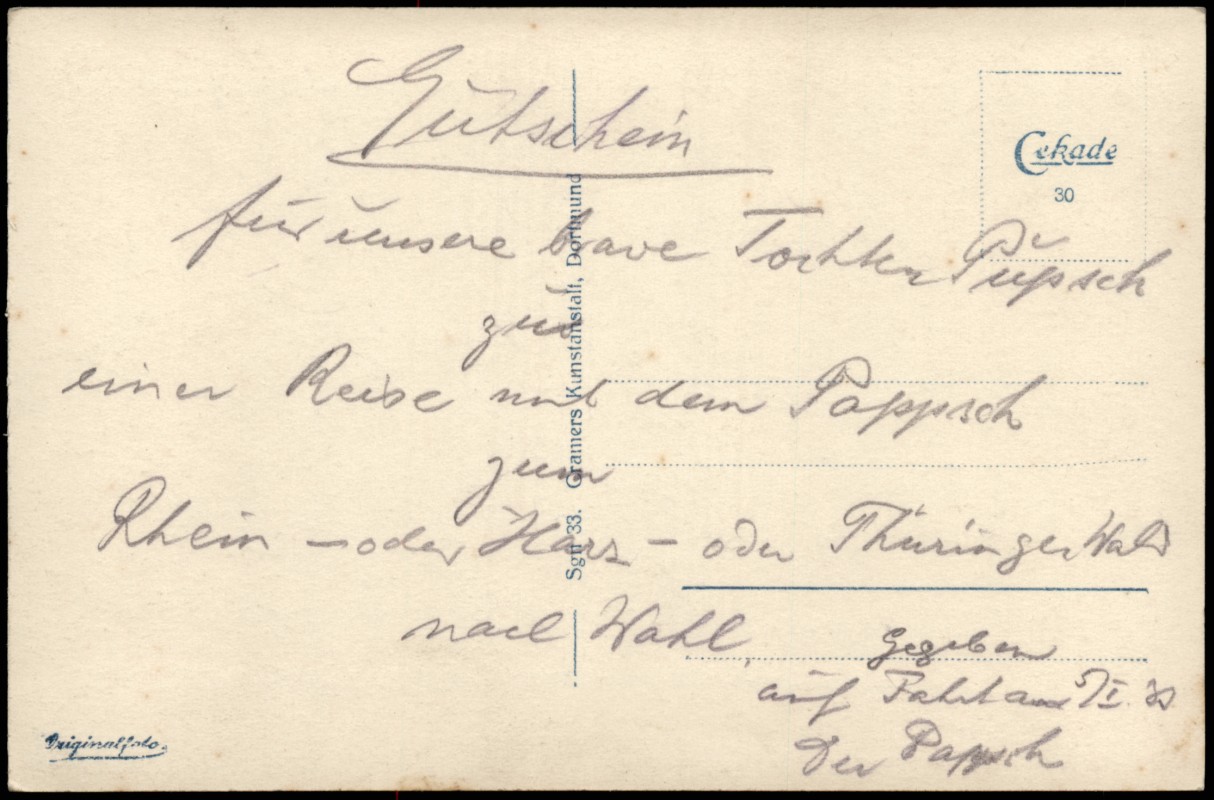 Gutschein
für unsere brave Tochter Püpsch
zu
einer Reise mit dem Pappsch
zum
Rhein - oder Harz - oder Thüringer Wald
nach Wahl.
Gegeben
auf Fahrt am 5/I.
Der Pappsch
Cekade
30
Sgtf 33. Cramers Kunstanstalt, Dortmund
Originalfoto.